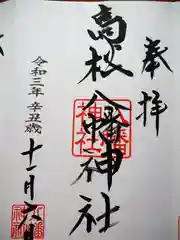 奉拝
高松八幡神社
八幡神社
令和三年 辛丑歳
十一月六日